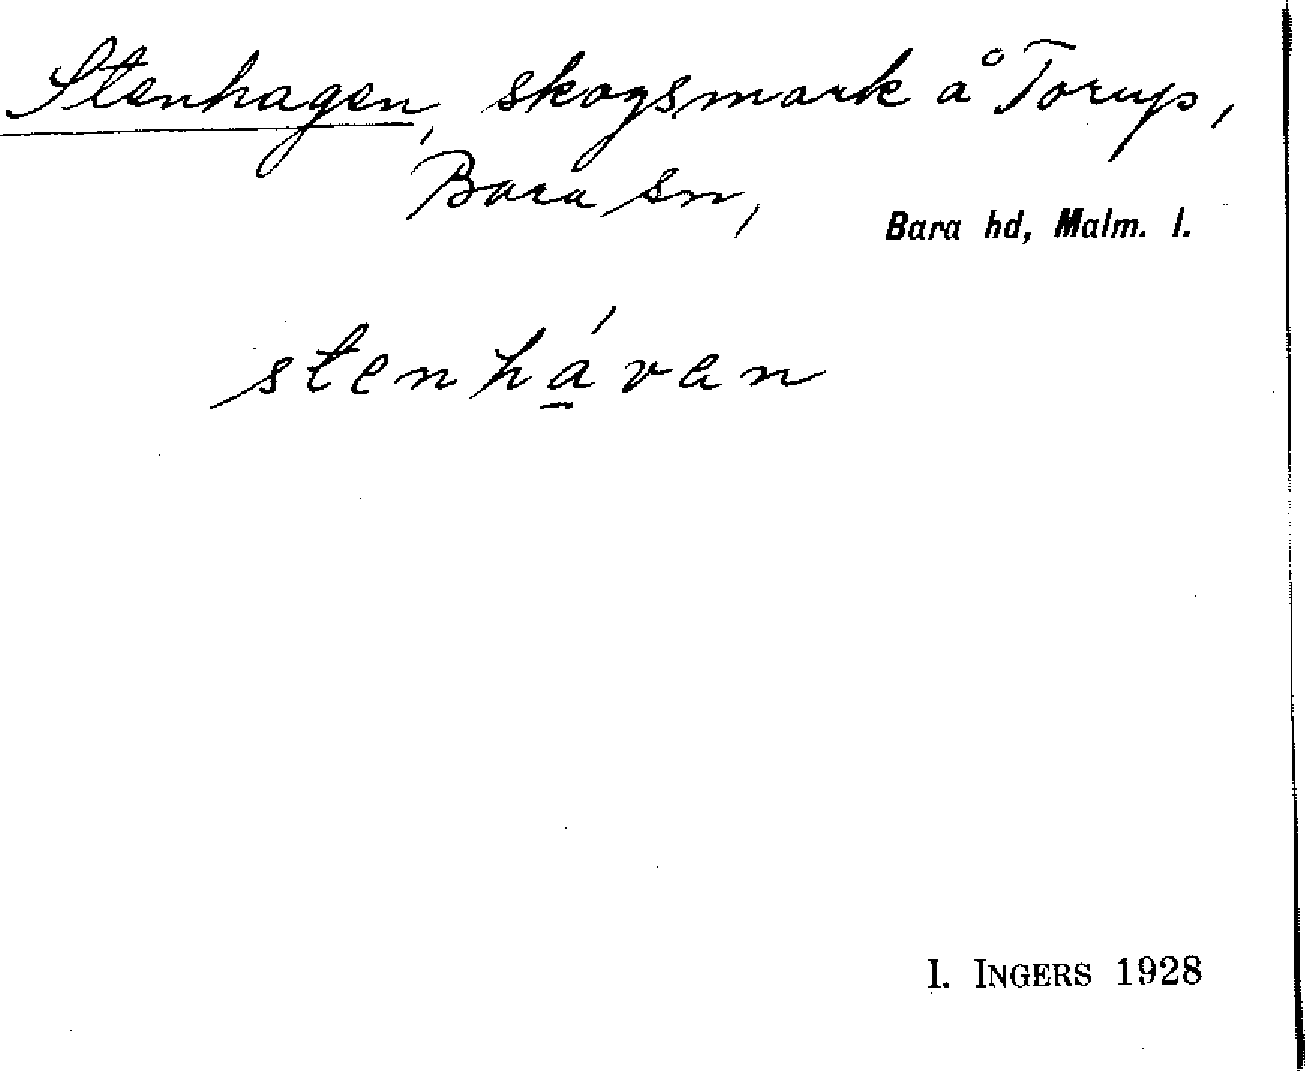 Stenhagen, skogsmark å Torup,
Bara sn,
Bara hd, Malm. l.
stenhá̱van
I. INGERS 1928